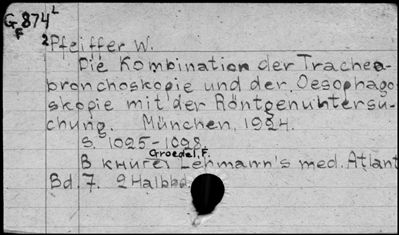 G 874²
F
²Pfeiffer W.
Die Kombination der Trachea-
bronchoskopie und der Oesophago
skopie mit der Röntgenuntersu-
chung. München, 1924.
S. 1025-1098.
Groedel, F.
В книге: Lehmann's med. Atlant
Bd. 7. 2 Halbbd